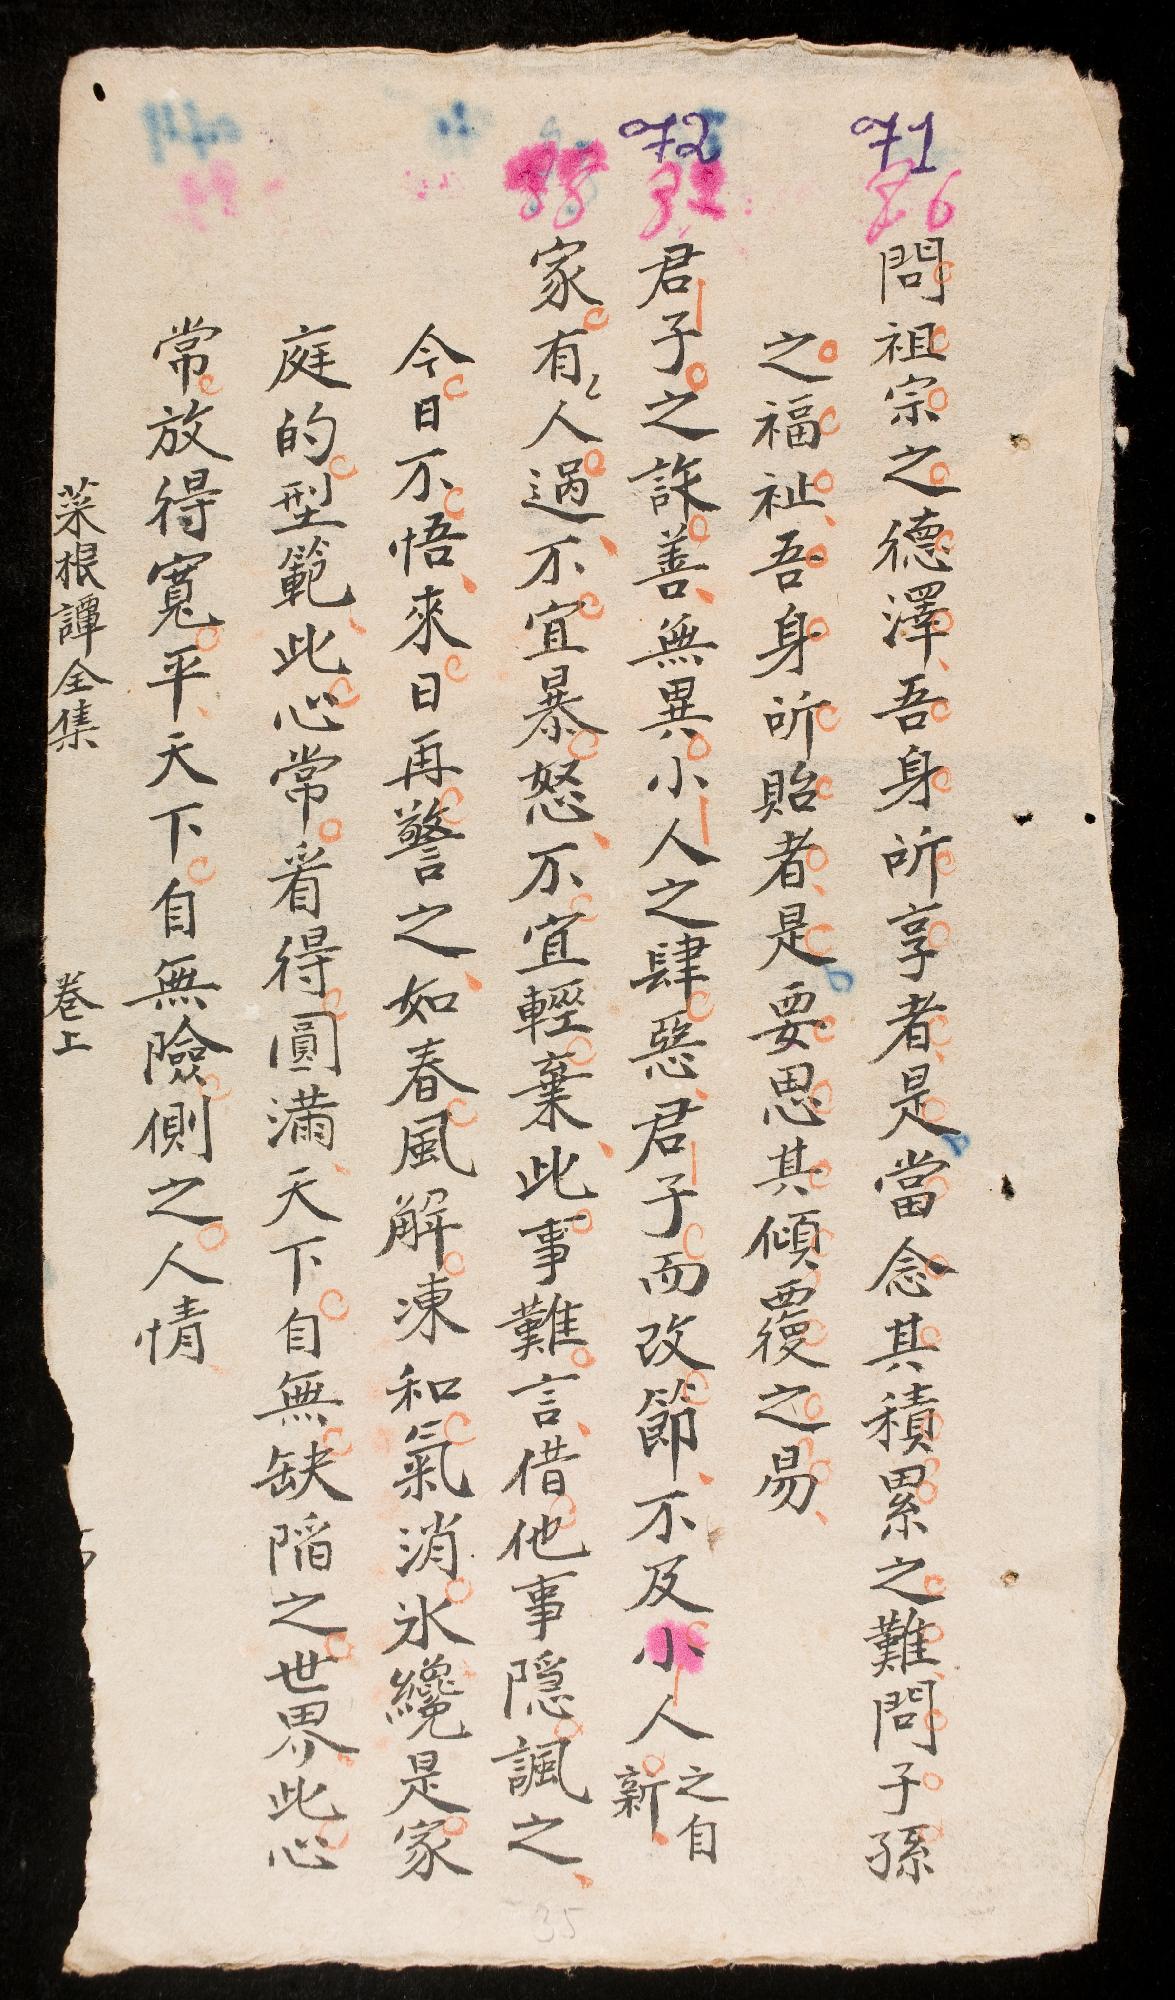 71 72
36 37
問祖宗之德澤吾身所享者是當念其積累之難問子孫
之福祉吾身所貽者是要思其傾覆之易
君子之詐善無異小人之肆惡君子而改節不及小人之自新
家有人過不宜暴怒不宜輕棄此事難言借他事隱諷之
今日不悟來日再警之如春風解凍和氣消氷纔是家
庭的型範此心常看得圓滿天下自無缺陷之世界此心
常放得寬平天下自無險側之人情
菜根譚全集 卷上
35